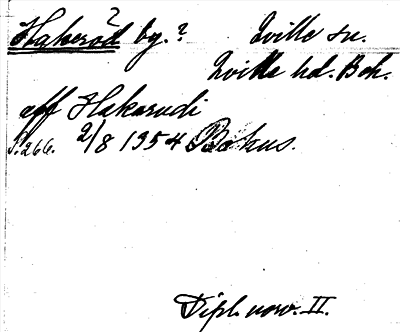 ?
Hakeröd by.? Qville sn.
Qville hd. Boh.
aff Hakarudi
S. 266. 2/8 1354 Båhus.
Dipl. norv. II.